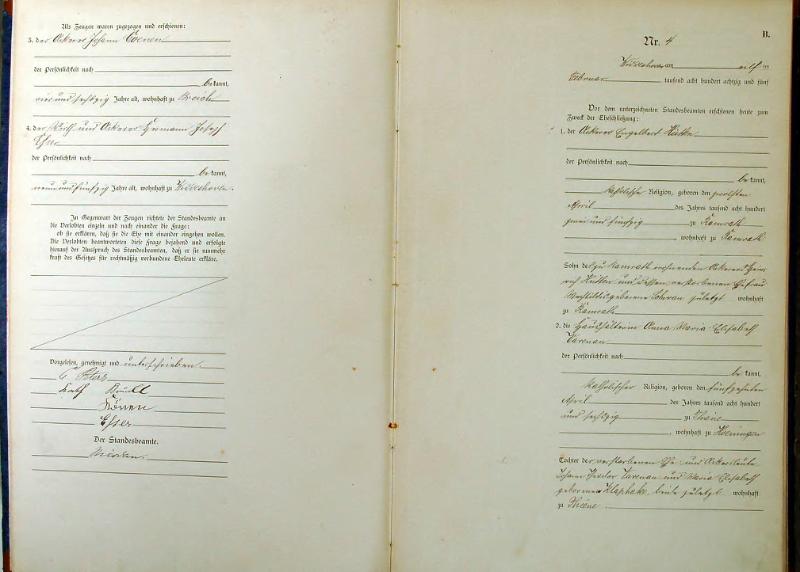 Als Zeugen waren zugezogen und erschienen:
3. der Ackerer Johann Coenen
der Persönlichkeit nach
be kannt,
vier und sechzig Jahre alt, wohnhaft zu Broich
4. der Wirth und Ackerer Hermann Joseph
Esser
der Persönlichkeit nach
be kannt,
neun und fünfzig Jahre alt, wohnhaft zu
In Gegenwart der Zeugen richtete der Standesbeamte an
die Verlobten einzeln und nach einander die Frage:
ob sie erklären, daß sie die Ehe mit einander eingehen wollen.
Die Verlobten beantworteten diese Frage bejahend und erfolgte
hierauf der Ausspruch des Standesbeamten, daß er sie nunmehr
kraft des Gesetzes für rechtmäßig verbundene Eheleute erkläre.
Vorgelesen, genehmigt und unterschrieben.
Peters
Kath Brüll
Könen
Esser
Der Standesbeamte.
B.
Nr. 4
am elf ten
Februar tausend acht hundert achtzig und fünf
Vor dem unterzeichneten Standesbeamten erschienen heute zum
Zweck der Eheschließung:
1. der Ackerer Engelbert Hütten
der Persönlichkeit nach
be kannt,
katholischer Religion, geboren den zwölften
April des Jahres tausend acht hundert
zwei und fünfzig zu Kamrath
, wohnhaft zu Kamrath
Sohn des zu Kamrath wohnenden Ackerers Hein
rich Hütten und dessen verstorbenen Ehefrau
geborene zuletzt wohnhaft
zu Kamrath
2. die Haushälterin Anna Maria Elisabeth
der Persönlichkeit nach
be kannt,
katholischer Religion, geboren den fünfzehnten
April des Jahres tausend acht hundert
und sechzig zu Thiene
, wohnhaft zu Hoeningen
Tochter der verstorbenen Ehe- und Ackersleute
Johann Theodor und Maria Elisabeth
geborenen Klaphake, beide zuletzt wohnhaft
zu Thiene